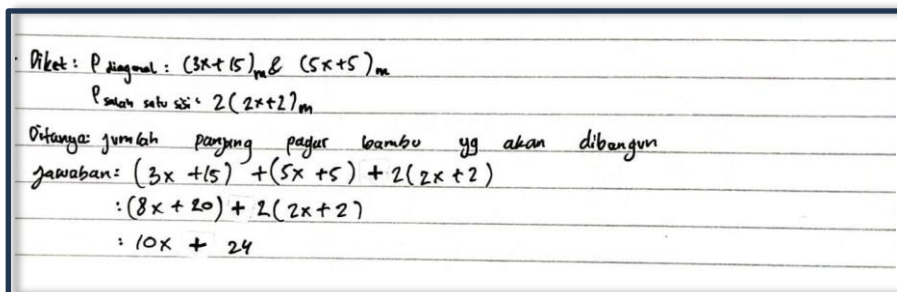 Diket: P diagonal: (3x+15)m & (5x+5)m
P salah satu sisi: 2(2x+2)m
Ditanya: jumlah panjang pagar bambu yg akan dibangun
Jawaban: (3x +15) +(5x +5) + 2(2x+2)
: (8x + 20) + 2(2x+2)
: 10x + 24